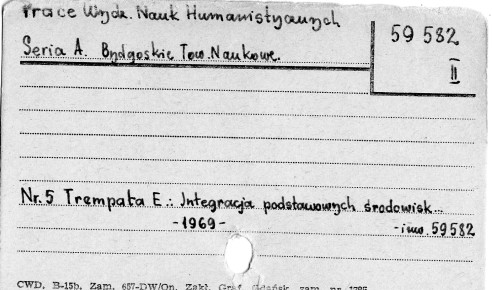 Prace Wydz. Nauk Humanistycznych
59 582
Seria A. Bydgoskie Tow. Naukowe.
II
Nr. 5 Trempała E.: Integracja podstawowych środowisk...
-1969-
-inw. 59582
CWD, B-15b, Zam. 657-DW/On. Zakł. Graf. Gdańsk, zam. nr